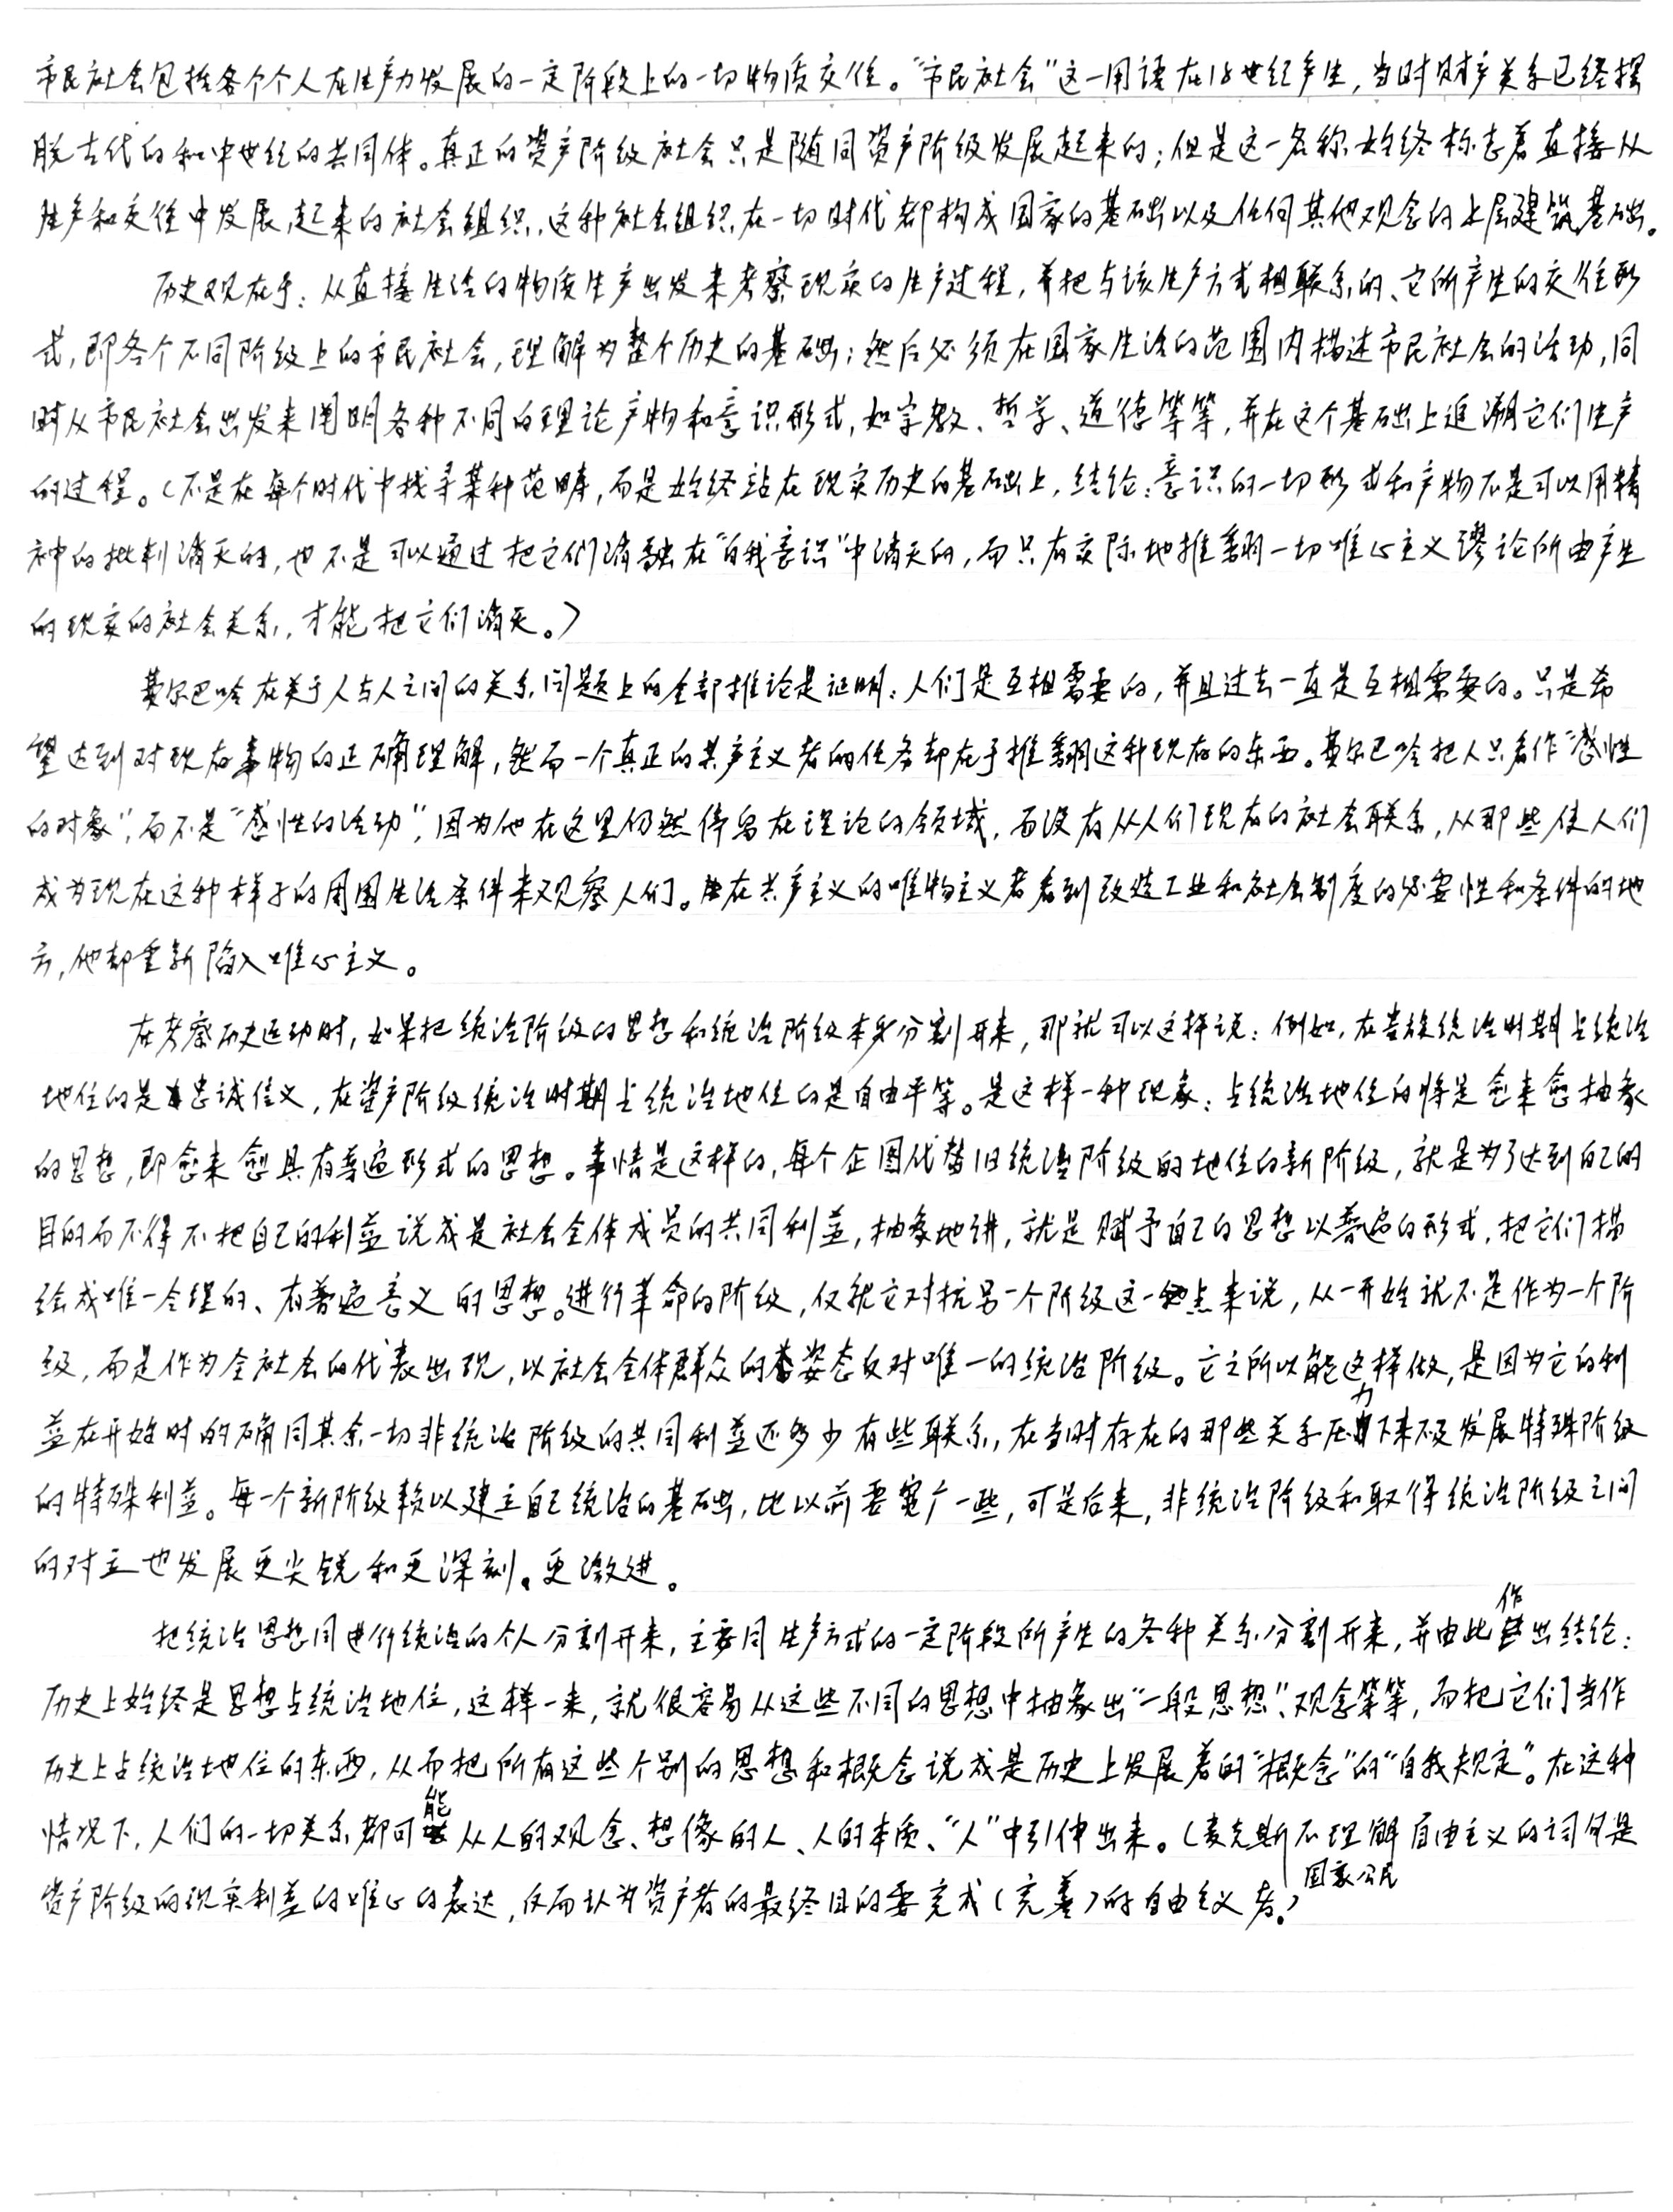 市民社会包括各个个人在生产力发展的一定阶段上的一切物质交往。“市民社会”这一用语在18世纪产生，当时财产关系已经摆
脱古代的和中世纪的共同体。真正的资产阶级社会只是随同资产阶级发展起来的；但是这一名称始终标志着直接从
生产和交往中发展起来的社会组织，这种社会组织在一切时代都构成国家的基础以及任何其他观念的上层建筑基础。
历史观在于：从直接生活的物质生产出发来考察现实的生产过程，并把与该生产方式相联系的、它所产生的交往形
式，即各个不同阶级上的市民社会，理解为整个历史的基础；然后必须在国家生活的范围内描述市民社会的活动，同
时从市民社会出发来阐明各种不同的理论产物和意识形式，如宗教、哲学、道德等等，并在这个基础上追溯它们生产
的过程。（不是在每个时代中找寻某种范畴，而是始终站在现实历史的基础上，结论：意识的一切形式和产物不是可以用精
神的批判消灭的，也不是可以通过把它们消融在“自我意识”中消灭的，而只有实际地推翻一切唯心主义谬论所由产生
的现实的社会关系，才能把它们消灭。）
费尔巴哈在关于人与人之间的关系问题上的全部推论是证明：人们是互相需要的，并且过去一直是互相需要的。只是希
望达到对现存事物的正确理解，然而一个真正的共产主义者的任务却在于推翻这种现存的东西。费尔巴哈把人只看作“感性
的对象”，而不是“感性的活动”，因为他在这里仍然停留在理论的领域，而没有从人们现有的社会联系，从那些使人们
成为现在这种样子的周围生活条件来观察人们。在共产主义的唯物主义者看到改造工业和社会制度的必要性和条件的地
方，他却重新陷入唯心主义。
在考察历史运动时，如果把统治阶级的思想和统治阶级本身分割开来，那就可以这样说：例如，在贵族统治时期占统治
地位的是忠诚信义，在资产阶级统治时期占统治地位的是自由平等。是这样一种现象：占统治地位的将是愈来愈抽象
的思想，即愈来愈具有普遍形式的思想。事情是这样的，每个企图代替旧统治阶级的地位的新阶级，就是为了达到自己的
目的而不得不把自己的利益说成是社会全体成员的共同利益，抽象地讲，就是赋予自己的思想以普遍的形式，把它们描
绘成唯一合理的、有普遍意义的思想。进行革命的阶级，仅就它对抗另一个阶级这一点来说，从一开始就不是作为一个阶
级，而是作为全社会的代表出现，以社会全体群众的姿态反对唯一的统治阶级。它之所以能这样做，是因为它的利
益在开始时的确同其余一切非统治阶级的共同利益还多少有些联系，在当时存在的那些关系压力下来不及发展特殊阶级
的特殊利益。每一个新阶级赖以建立自己统治的基础，比以前要宽广一些，可是后来，非统治阶级和取得统治阶级之间
的对立也发展更尖锐和更深刻、更激进。
把统治思想同进行统治的个人分割开来，主要同生产方式的一定阶段所产生的各种关系分割开来，并由此作出结论：
历史上始终是思想占统治地位，这样一来，就很容易从这些不同的思想中抽象出“一般思想”、观念等等，而把它们当作
历史上占统治地位的东西，从而把所有这些个别的思想和概念说成是历史上发展着的“概念”的“自我规定”。在这种
情况下，人们的一切关系都可能从人的观念、想像的人、人的本质、“人”中引伸出来。（麦克斯不理解自由主义的词句是
资产阶级的现实利益的唯心的表达，反而认为资产者的最终目的要完成（完善）的自由主义者。国家公民）